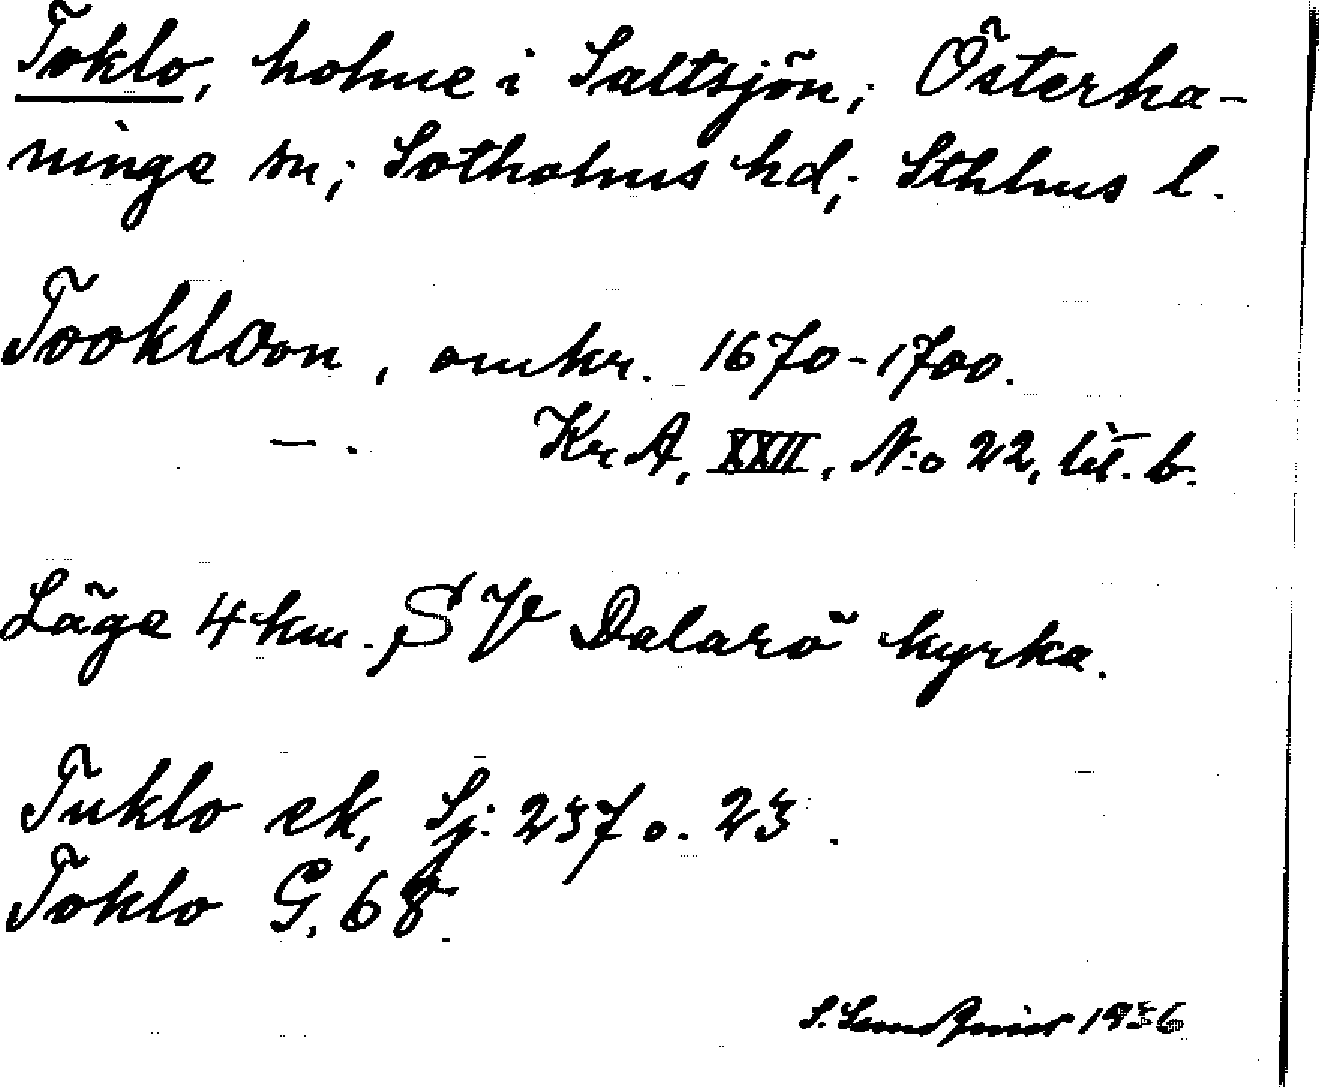 Toklo, holme i Saltsjön; Österha-
ninge sn; Sotholms hd; Sthlms l.
Tookloon, omkr. 1670-1700.
— . KrA, XXII, N:o 22, lit. b.
Läge 4 km. SV Dalarö kyrka.
Tuklo ek, Sj: 237 o. 23 .
Toklo G. 68.
S. Sundqvist 1936